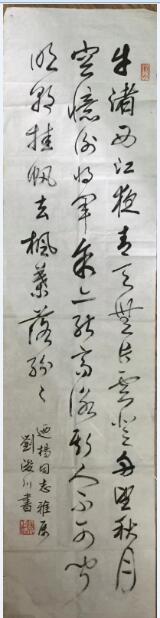 牛渚西江夜青天無片雲登舟望秋月
空憶謝將軍余亦能高詠斯人不可聞
明朝挂帆去楓葉落紛〻
楊同志雅屬
劉浚川書